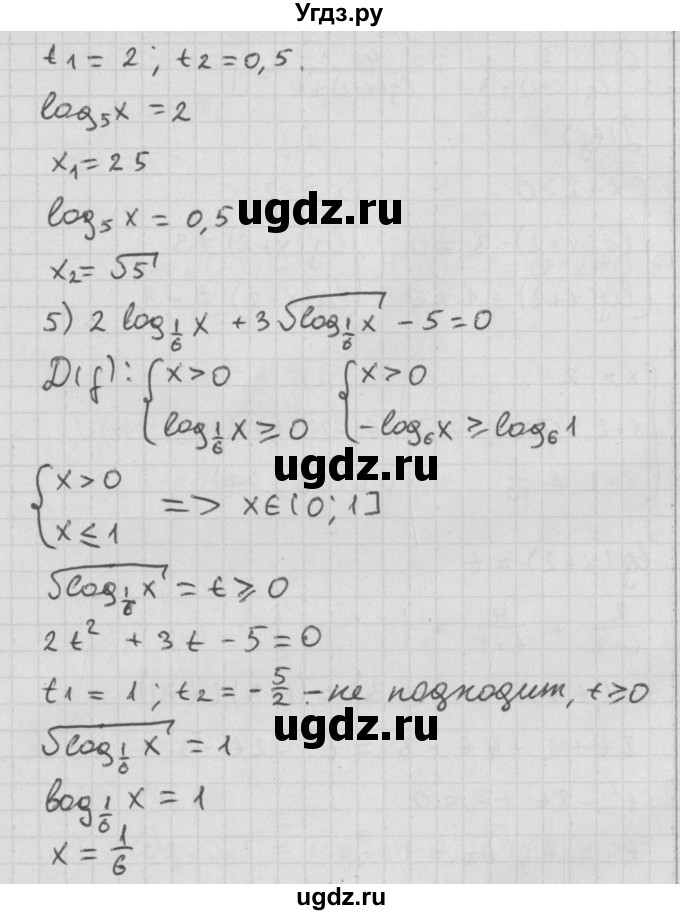 Угдз.ру
t₁ = 2 ; t₂ = 0,5.
log₅x = 2
x₁ = 25
log₅x = 0,5
ugdz.ru
x₂ = √5
5) 2 log_{1/6} x + 3√(log_{1/6} x) - 5 = 0
D(f): { x > 0 { x > 0
log_{1/6} x ≥ 0 -log₆x ≥ log₆1
ugdz.ru
{ x > 0
x ≤ 1 => x ∈ (0; 1]
√(log_{1/6} x) = t ≥ 0
2t² + 3t - 5 = 0
t₁ = 1 ; t₂ = -5/2 - не подходит, t ≥ 0
ugdz.ru
√(log_{1/6} x) = 1
log_{1/6} x = 1
x = 1/6
ugdz.ru